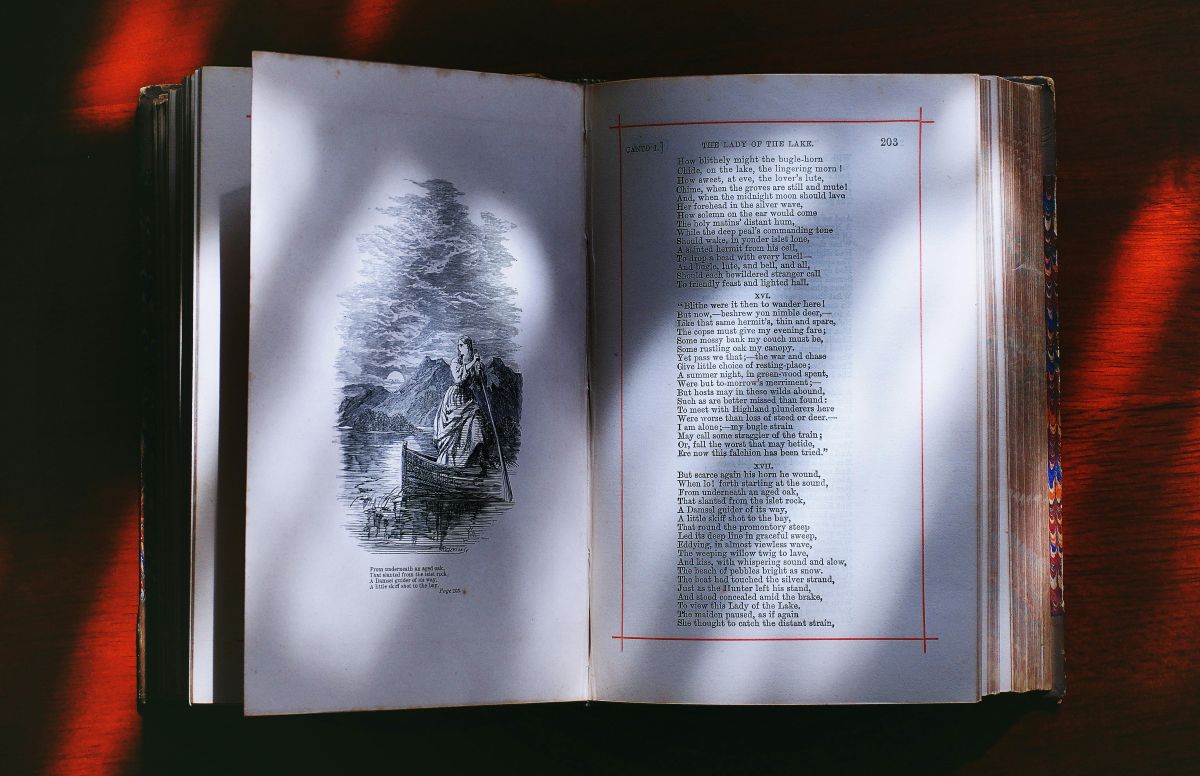 From underneath an aged oak,
That slanted from the islet rock,
A Damsel guider of its way,
A little skiff shot to the bay.
Page 203
CANTO I.]
THE LADY OF THE LAKE.
203
How blithely might the bugle-horn
Chide, on the lake, the lingering morn!
How sweet, at eve, the lover's lute,
Chime, when the groves are still and mute!
And, when the midnight moon should lave
Her forehead in the silver wave,
How solemn on the ear would come
The holy matins' distant hum,
While the deep peal's commanding tone
Should wake, in yonder islet lone,
A sainted hermit from his cell,
To drop a bead with every knell—
And bugle, lute, and bell, and all,
Should each bewildered stranger call
To friendly feast and lighted hall.
XVI.
"Blithe were it then to wander here!
But now,—beshrew yon nimble deer,—
Like that same hermit's, thin and spare,
The copse must give my evening fare;
Some mossy bank my couch must be,
Some rustling oak my canopy.
Yet pass we that;—the war and chase
Give little choice of resting-place;
A summer night, in green-wood spent,
Were but to-morrow's merriment;—
But hosts may in these wilds abound,
Such as are better missed than found:
To meet with Highland plunderers here
Were worse than loss of steed or deer.—
I am alone;—my bugle strain
May call some straggler of the train;
Or, fall the worst that may betide,
Ere now this falchion has been tried."
XVII.
But scarce again his horn he wound,
When lo! forth starting at the sound,
From underneath an aged oak,
That slanted from the islet rock,
A Damsel guider of its way,
A little skiff shot to the bay,
That round the promontory steep
Led its deep line in graceful sweep,
Eddying, in almost viewless wave,
The weeping willow twig to lave,
And kiss, with whispering sound and slow,
The beach of pebbles bright as snow.
The boat had touched the silver strand,
Just as the Hunter left his stand,
And stood concealed amid the brake,
To view this Lady of the Lake.
The maiden paused, as if again
She thought to catch the distant strain,